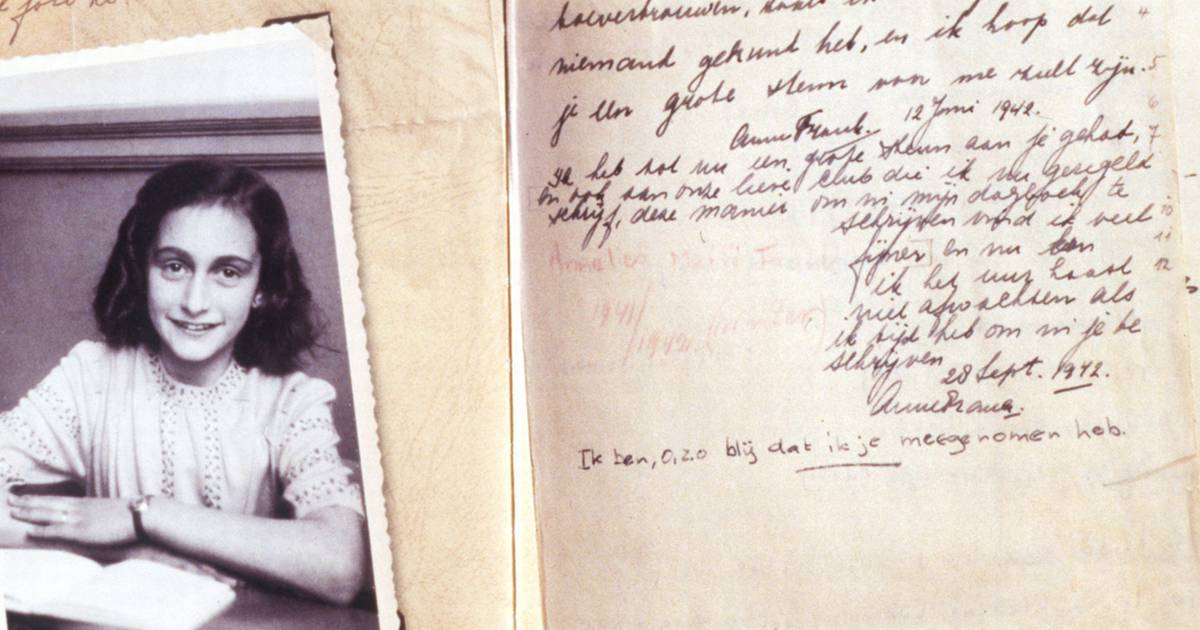 toevertrouwen, zoals ik
niemand gekund heb, en ik hoop dat 4
je een grote steun voor me zult zijn. 5
6
Anne Frank. 12 Juni 1942.
Ik heb tot nu een grote steun aan je gehad, 7
en ook aan onze lieve club die ik nu geregeld
schrijf, deze manier om in mijn dagboek te
schrijven vind ik veel 10
fijner en nu kan 11
ik het uur haast 12
niet afwachten als
ik tijd heb om in je te
schrijven
28 Sept. 1942.
Anne Frank.
Ik ben, o, zo blij dat ik je meegenomen heb.
1941/
/1942